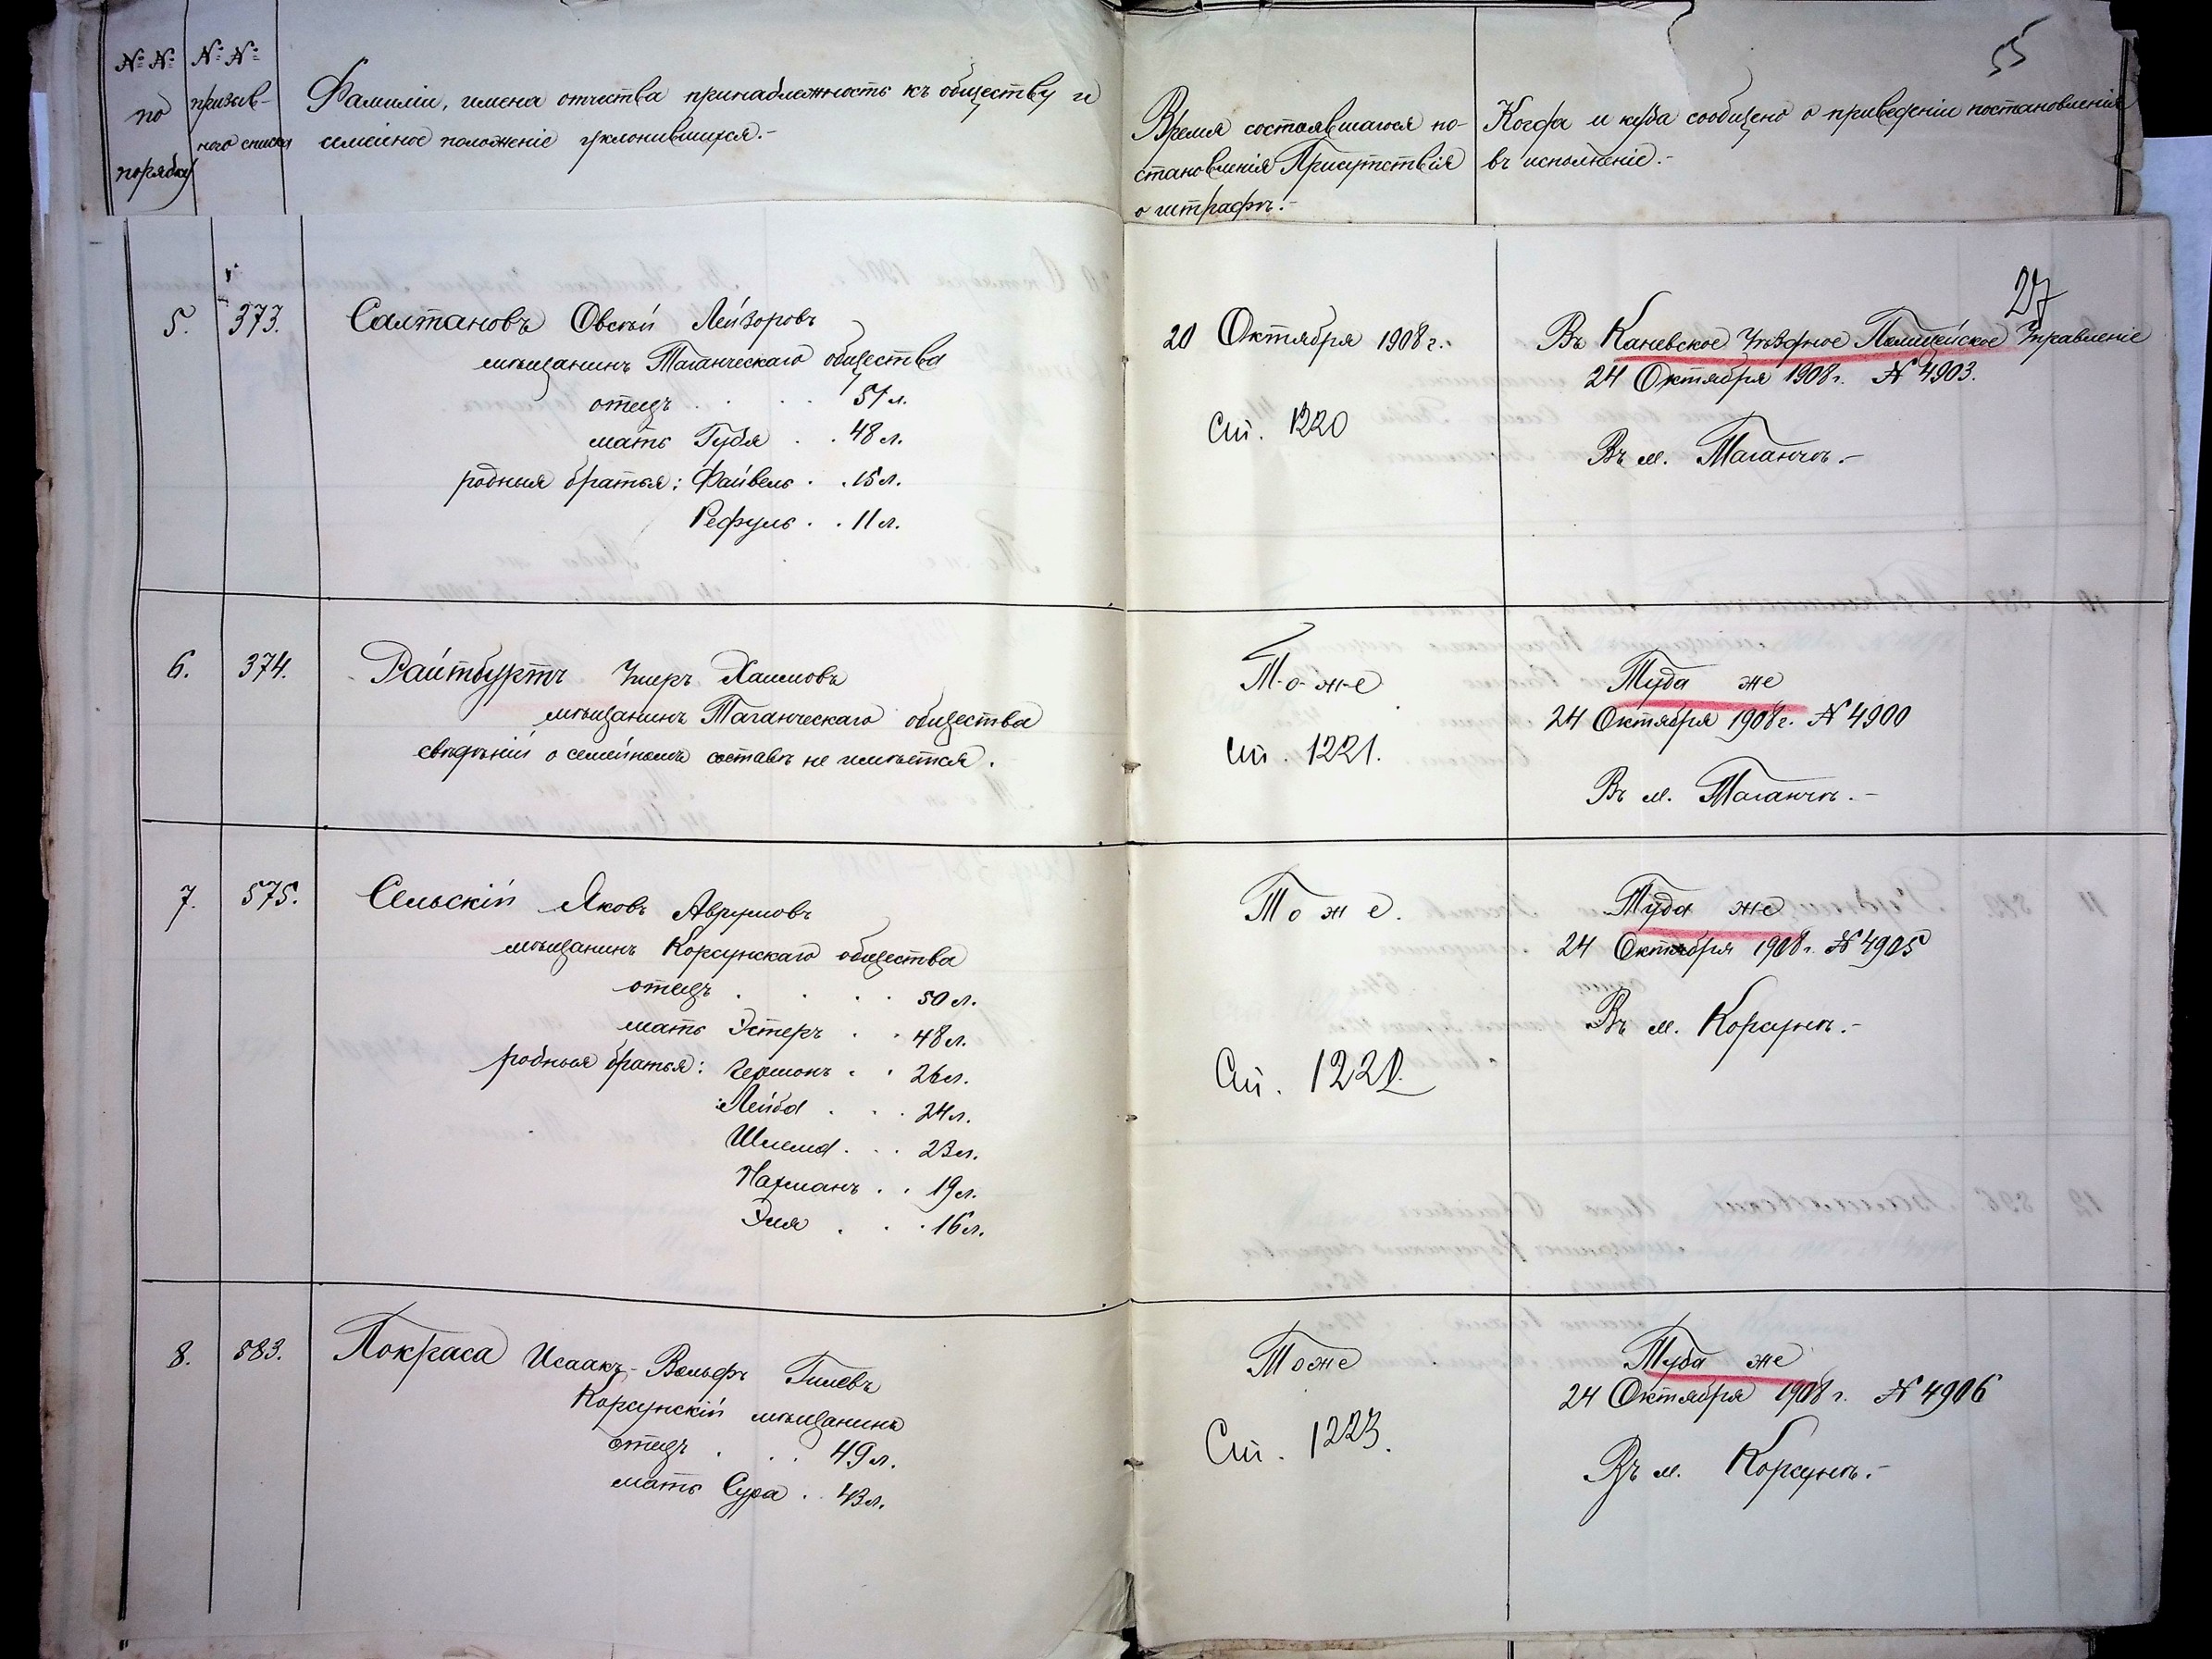 № № по порядку
№ № призыв-
ного списка
Фамиліи, имена отчества принадлежность къ обществу и
семейное положеніе уклонившихся.-
Время состоявшагося по-
становленія Присутствія
о штрафѣ.-
Когда и куда сообщено о приведеніи постановленія
въ исполненіе.-
55
27
5.
373.
Салтановъ Овсѣй Лейзоровъ
мѣщанинъ Таганческаго общества
отецъ . . . . 51 л.
мать Губя . . 48 л.
родныя братья: Файвель . . 15 л.
Рефуль . . 11 л.
20 Октября 1908 г.
Ст. 1220
Въ Каневское Уѣздное Полицейское Управленіе
24 Октября 1908 г. № 4903.
Въ м. Таганчѣ.-
6.
374.
Райтбуртъ Хаимовъ
мѣщанинъ Таганческаго общества
свѣдѣній о семейномъ составѣ не имѣется.
То-же
Ст. 1221.
Туда же
24 Октября 1908 г. № 4900
Въ м. Таганчѣ.-
7.
575.
Сельскій Яковъ Аврумовъ
мѣщанинъ Корсунскаго общества
отецъ . . . . 50 л.
мать Эстеръ . . 48 л.
родныя братья: Гершонъ . . 26 л.
Лейба . . . 24 л.
Шлема . . . 23 л.
Нахманъ . . 19 л.
Эля . . . 16 л.
То же.
Ст. 1222.
Туда же
24 Октября 1908 г. № 4905
Въ м. Корсунѣ.-
8.
583.
Покраса Исаакъ-Вольфъ Гилевъ
Корсунскій мѣщанинъ
отецъ . . . 49 л.
мать Сура . . 43 л.
Тоже
Ст. 1223.
Туда же
24 Октября 1908 г. № 4906
Въ м. Корсунѣ.-